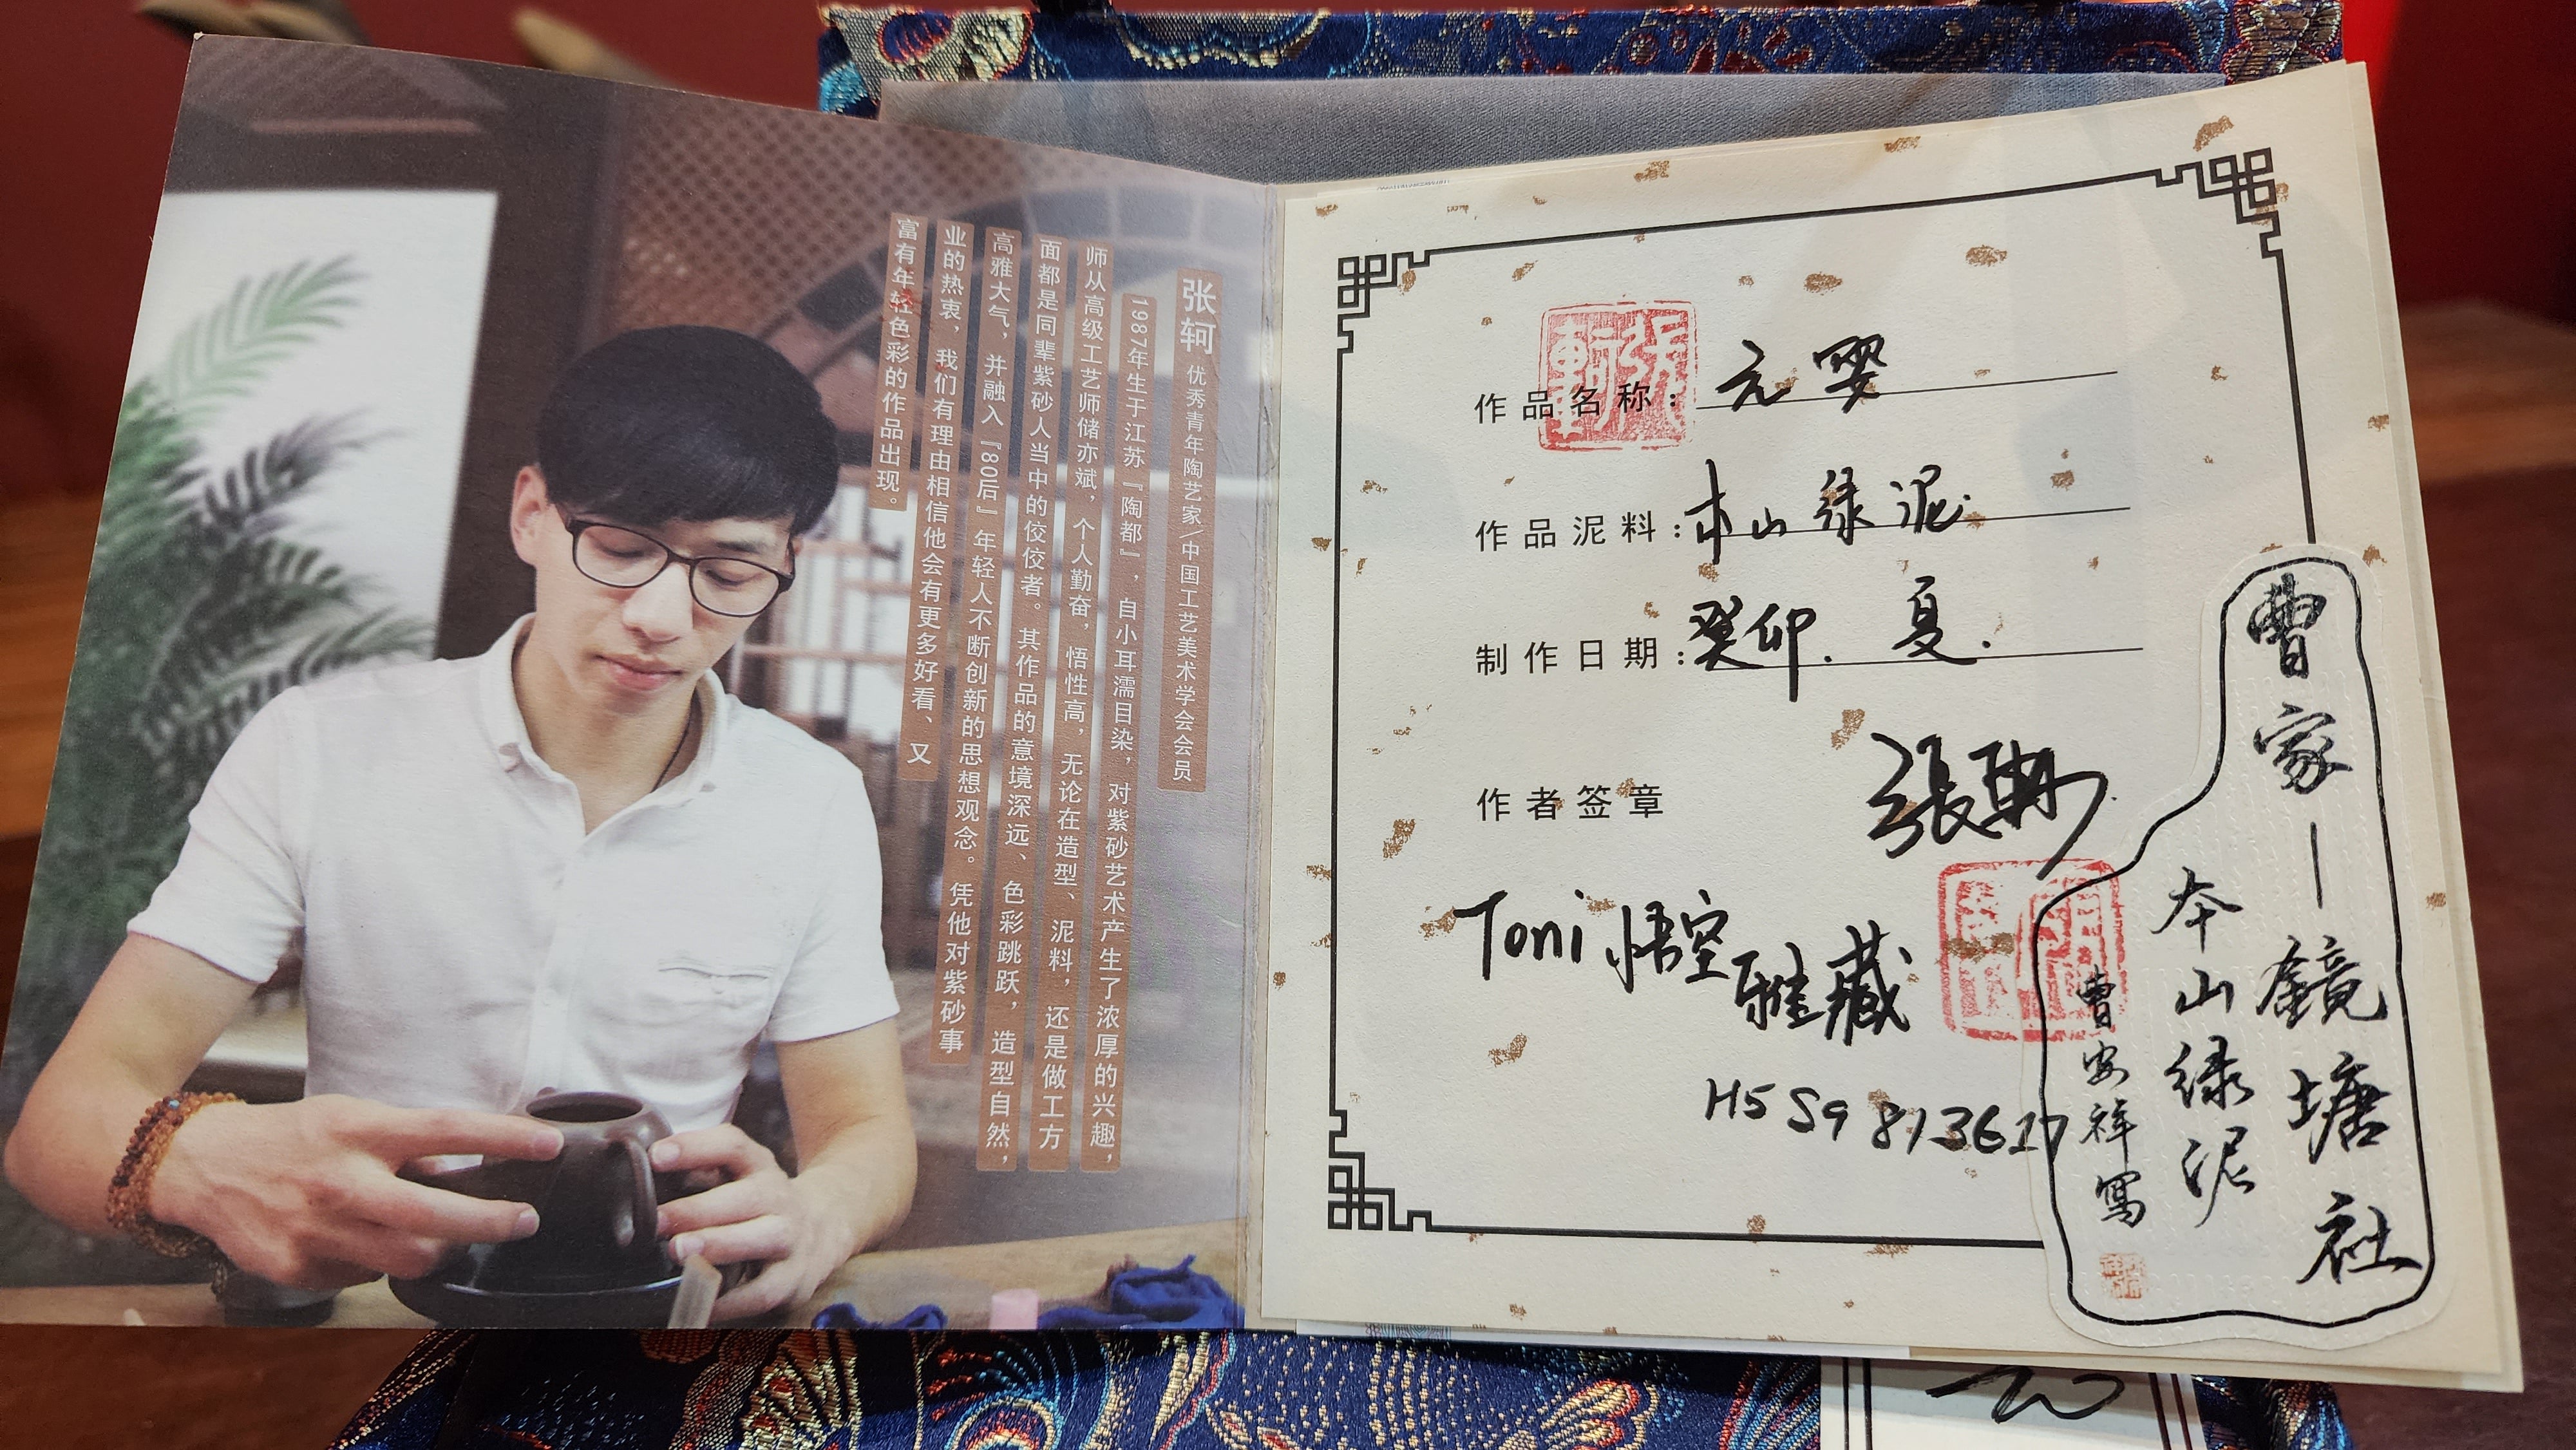 张轲 优秀青年陶艺家/中国工艺美术学会会员
1987年生于江苏『陶都』，自小耳濡目染，对紫砂艺术产生了浓厚的兴趣，
师从高级工艺师储亦斌，个人勤奋，悟性高，无论在造型、泥料，还是做工方
面都是同辈紫砂人当中的佼佼者。其作品的意境深远、色彩跳跃，造型自然，
高雅大气，并融入『80后』年轻人不断创新的思想观念。凭他对紫砂事
业的热衷，我们有理由相信他会有更多好看、又
富有年轻色彩的作品出现。
作品名称：元婴
作品泥料：本山绿泥
制作日期：癸卯.夏.
作者签章 張軻
Toni 悟空
雅藏
H5 S9 813617
曹家—鏡塘社
本山绿泥
曹安祥寫